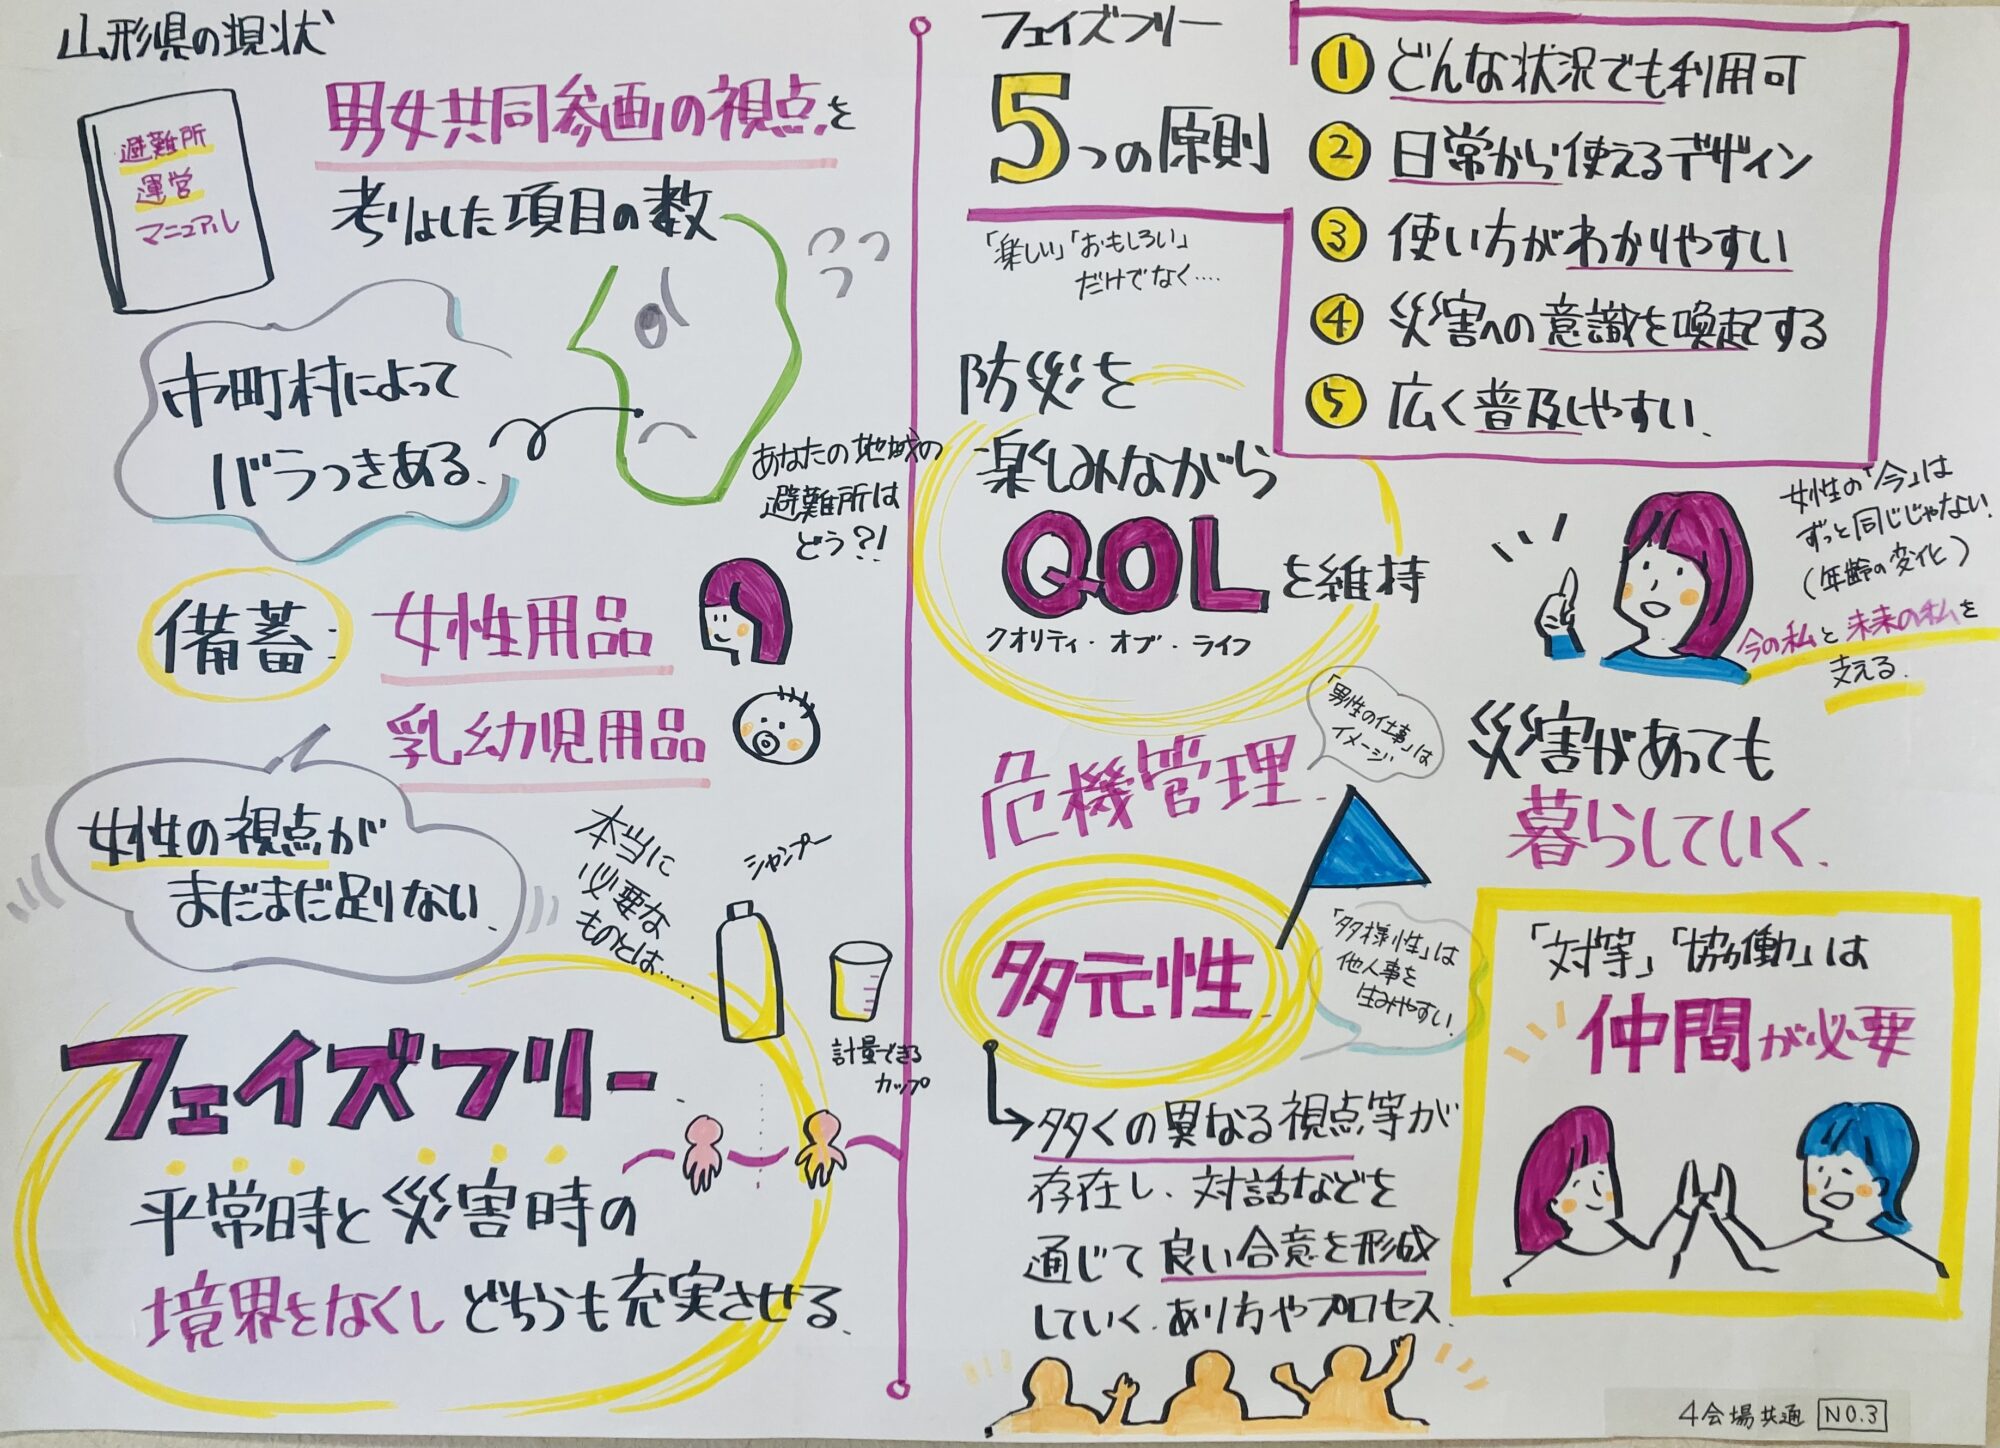 山形県の現状
避難所
運営
マニュアル
男女共同参画の視点を
考りょした項目の数
市町村によって
バラつきある.
あなたの地域の
避難所は
どう?!
備蓄:
女性用品
乳幼児用品
女性の視点が
まだまだ足りない.
本当に
必要な
ものとは....
シャンプー
計量できる
カップ
フェイズフリー
平常時と災害時の
境界をなくしどちらも充実させる.
フェイズフリー
5つの原則
① どんな状況でも利用可
② 日常から使えるデザイン
③ 使い方がわかりやすい
④ 災害への意識を喚起する
⑤ 広く普及しやすい.
「楽しい」「おもしろい」
だけでなく....
防災を
楽しみながら
QOLを維持
クオリティ・オブ・ライフ
女性の「今」は
ずっと同じじゃない!
(年齢の変化)
今の私と未来の私を
支える.
危機管理.
「男性の仕事」は
イメージ
災害があっても
暮らしていく.
多元性
「多様性」は
他人事を
生みやすい!
多くの異なる視点等が
存在し、対話などを
通じて良い合意を形成
していく.あり方やプロセス.
「対等」「協働」は
仲間が必要
4会場共通 NO.3